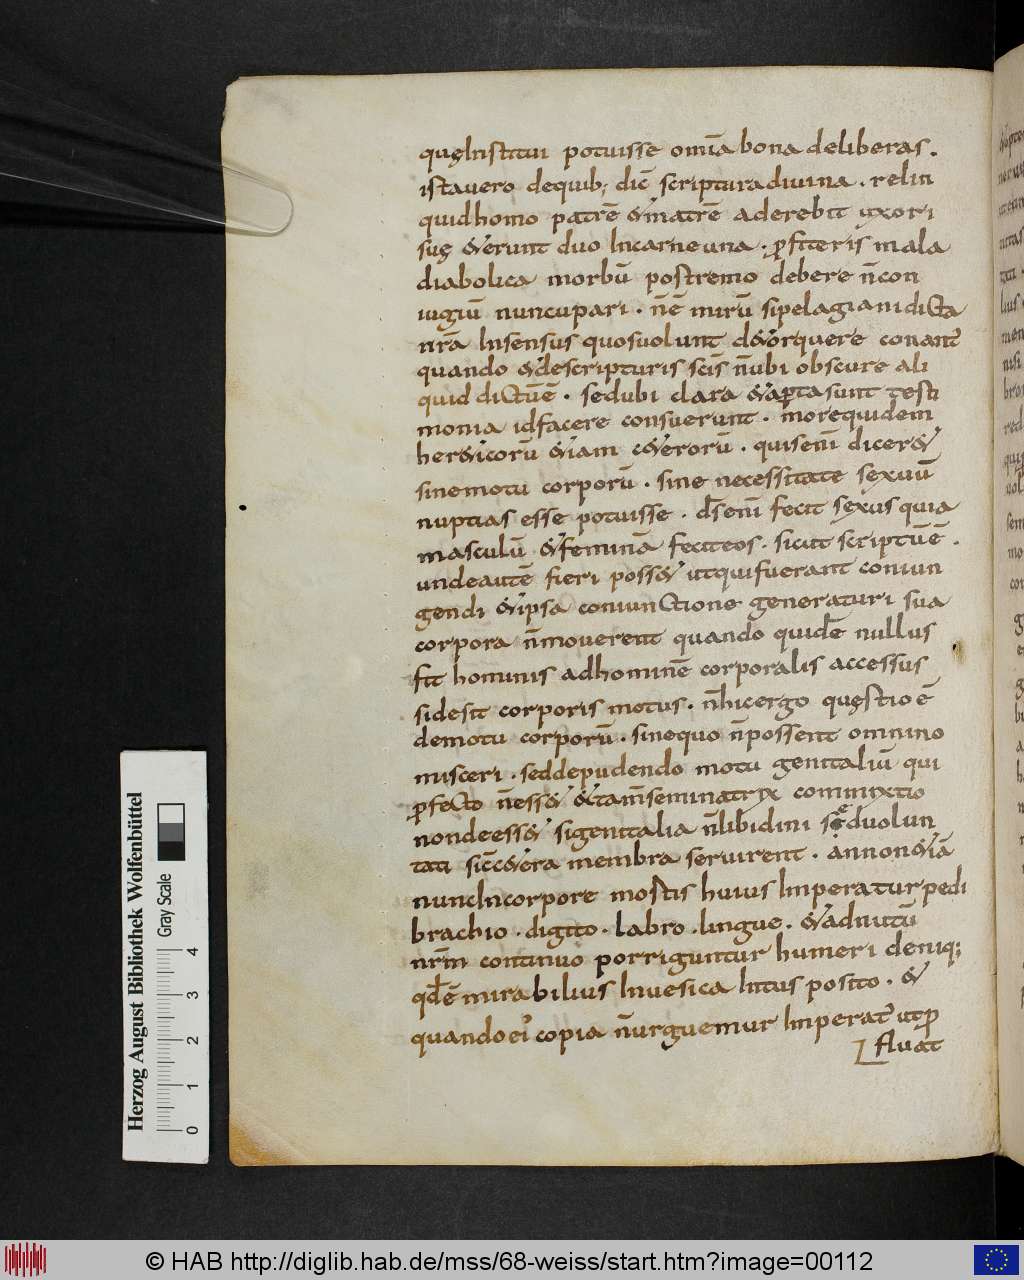 quęInstitui potuisse om̄ia bona deliberas.
ista uero de quib; dic̄ scriptura diuina. relin
quid homo patrē & matrē aderebit uxori
suę & erunt duo In carne una. ꝓfiteris mala
diabolica morbū postremo debere n̄ con
iugiū nuncupari. n̄ ē mirū si pelagiani dicta
nr̄a In sensus quos uolunt d&orquere conant᷑
quando & de scripturis sc̄is n̄ ubi obscure ali
quid dictū ē. sed ubi clara & aꝑta sunt testi
monia id facere consuerunt. more quidem
her&icorū &iam c&erorū. qui seni᷑ dicer&
sine motu corporū. sine necessitate sexuū
nuptias esse potuisse. d̄s eni᷑ fecit sexus quia
masculū & feminā fecit eos. sicut scriptū ē.
unde autē fieri poss& ut qui fuerant coniun
gendi & ipsa coniunctione generaturi sua
corpora n̄ mouerent quando quidē nullus
fit hominis ad hominē corporalis accessus
si desit corporis motus. n̄ hic ergo quęstio ē
de motu corporū. sine quo n̄ possent omnino
misceri. sed de pudendo motu genitaliū qui
ꝓfecto n̄ ess& & tam̄ seminatrix commixtio
non deess& si genitalia n̄ libidini sed uolun
tati sic̄ c&era membra seruirent. an non &iā
nunc In corpore mostis huius Imperatur pedi
brachio. digito. labro. lingue. & ad nutū
nr̄m continuo porriguntur humeri deniq;
qd̄ ē mirabilius In uesica Intus posito. &
quando ei᷑ copia n̄ urguemur Imperat᷑ ut ꝓ
fluat
Herzog August Bibliothek Wolfenbüttel
Gray Scale
0 1 2 3 4
© HAB http://diglib.hab.de/mss/68-weiss/start.htm?image=00112